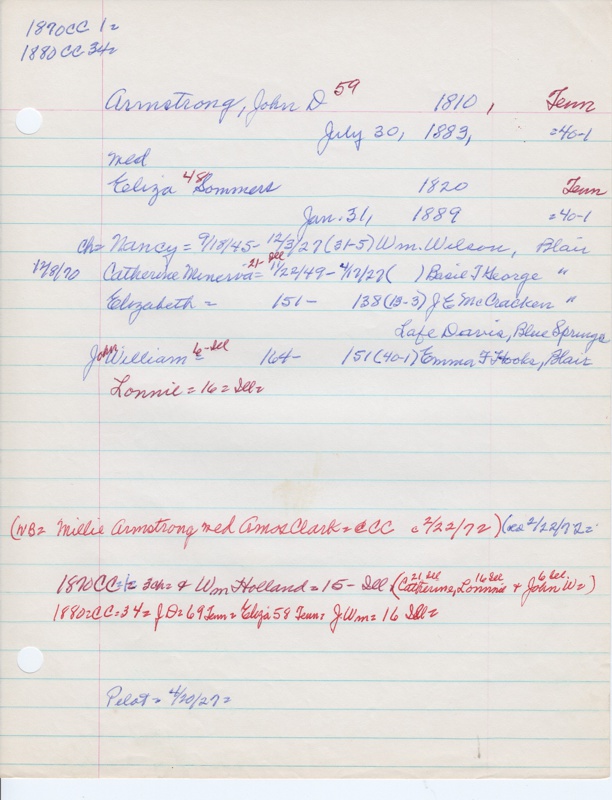 1870CC 1=
1880 CC 34=
Armstrong, John D 59 1810, Tenn
July 30, 1883, =40-1
med
Eliza 48 Sommers 1820 Tenn
Jan. 31, 1889 =40-1
ch= Nancy = 9/18/45- 12/3/27 (31-5) Wm. Wilson, Blair
12/8/70 Catherine Minerva= 21- Ill 11/22/49- 4/17/27 ( ) Basie T George "
Elizabeth = 151- 138 (13-3) J E McCracken "
Lafe Davis, Blue Springs
John William = 6- Ill 164- 151 (40-1) Emma F Hooks, Blair
Lonnie = 16 = Ill=
(NB= Millie Armstrong med Amos Clark = CCC c 2/22/72) (co 2/22/72=
1870 CC=1= 3ch= & Wm Holland = 15- Ill (Catherine, 21 Ill Lonnie 16 Ill & John W= 6 Ill)
1880=CC=34= J D= 69 Tenn= Eliza 58 Tenn= J. Wm= 16 Ill=
Pilot= 4/20/27=